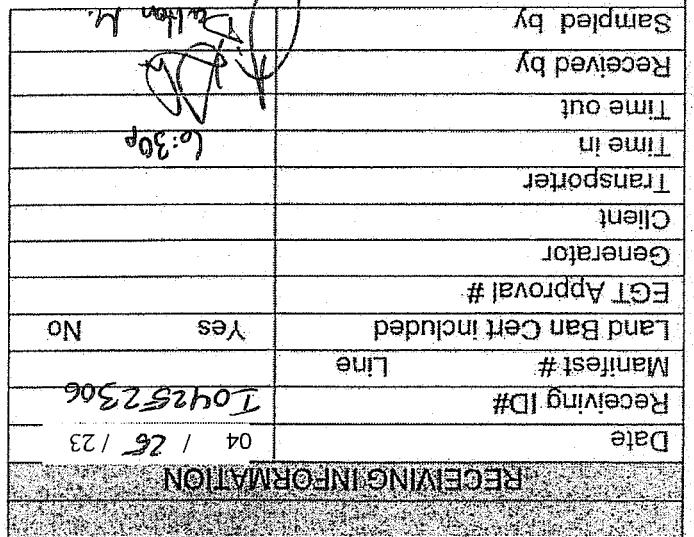 RECEIVING INFORMATION
Date 04 / 25 / 23
Receiving ID# I04252306
Manifest # Line
Land Ban Cert included Yes No
EGT Approval #
Generator
Client
Transporter
Time in 6:30p
Time out
Received by
Sampled by Dalton M.